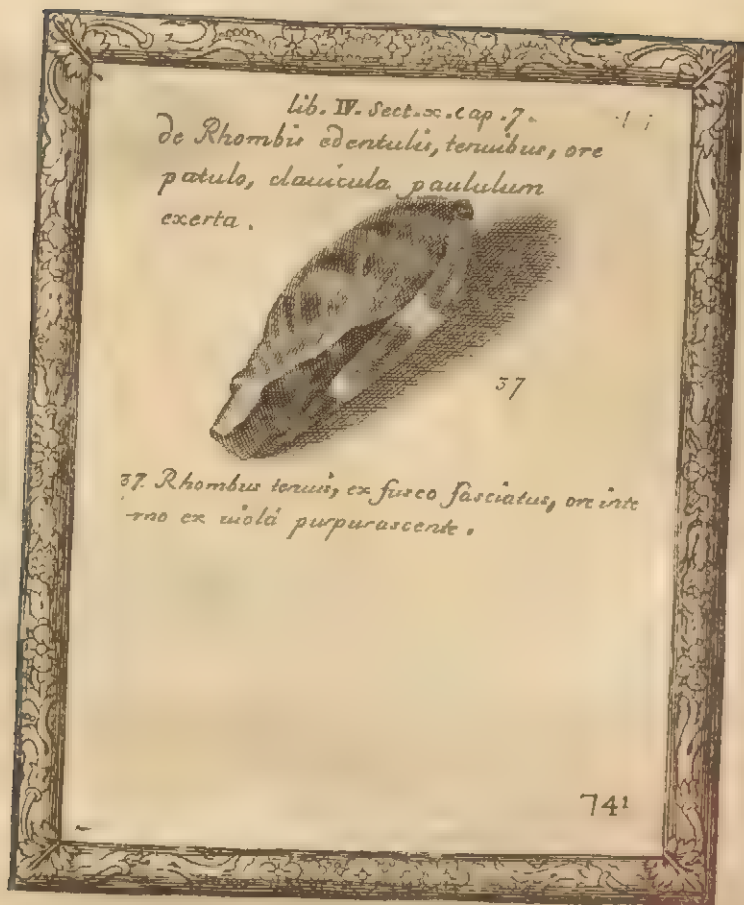 lib. IV. Sect. x. cap. 7.
de Rhombis edentulis, tenuibus, ore
patulo, clauicula paululum
exerta.
37
37. Rhombus tenuis, ex fusco fasciatus, ore inte
rno ex uiolâ purpurascente.
741